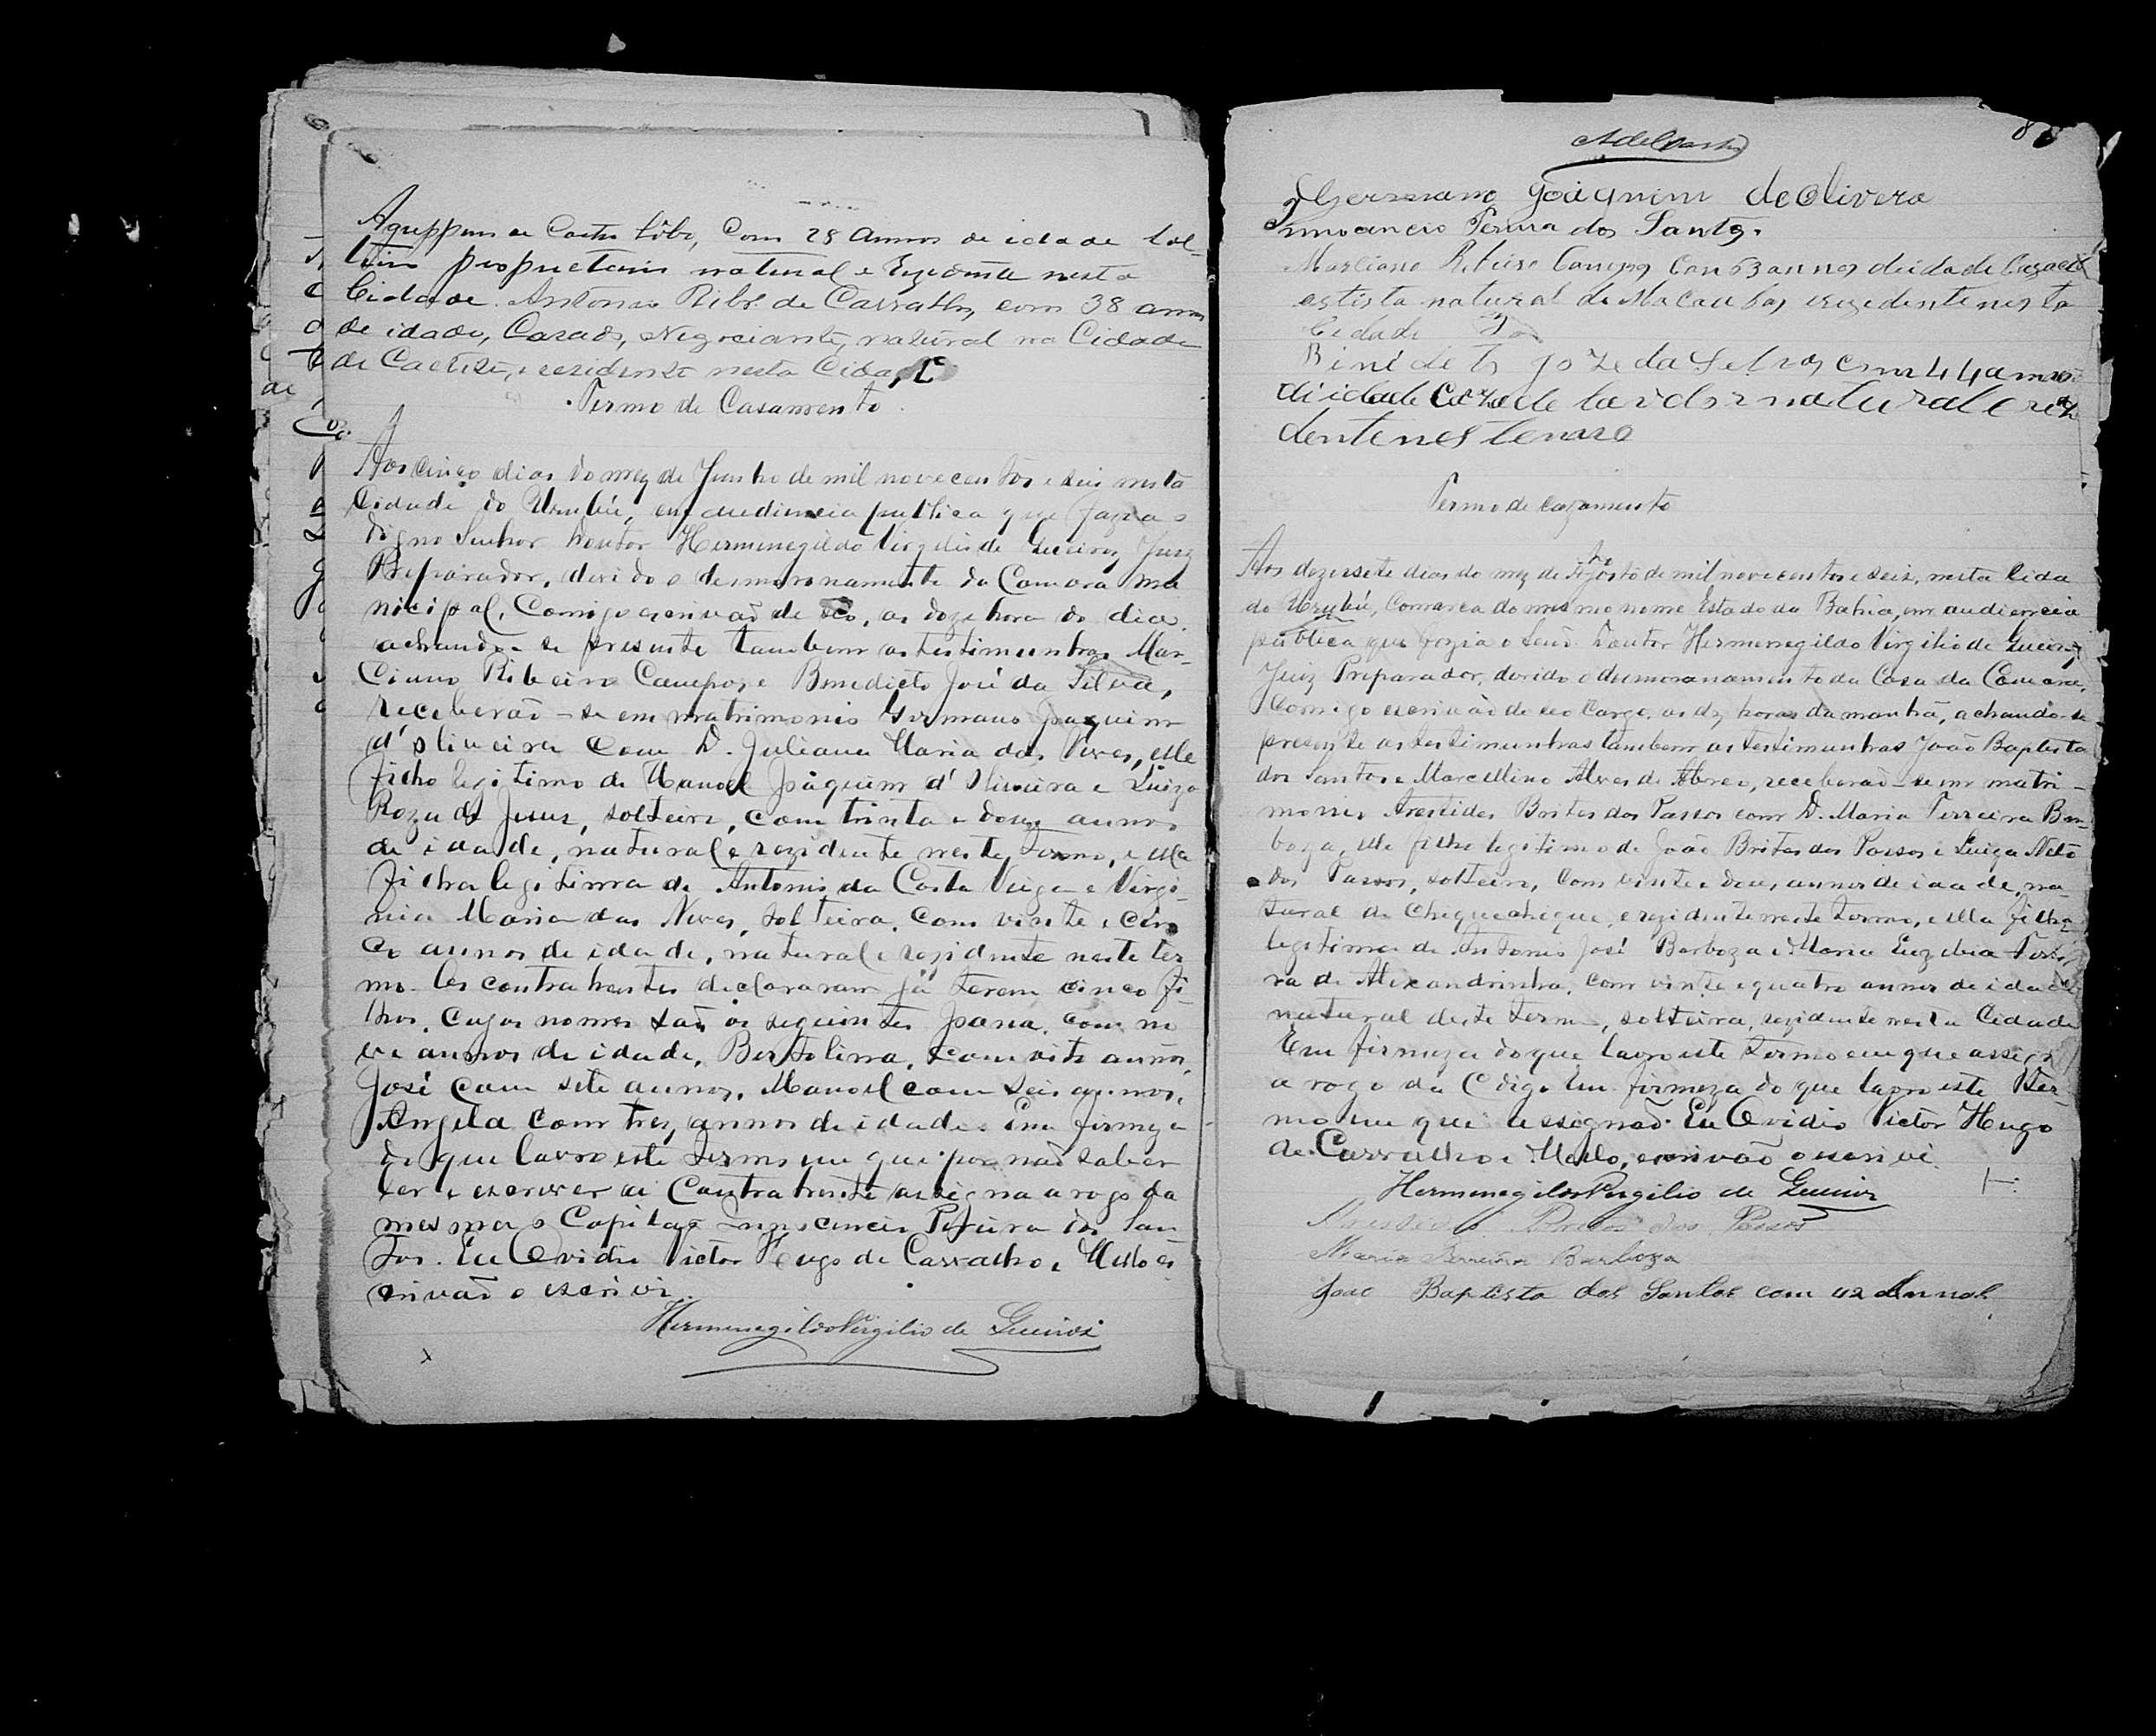 com 28 Annos de idade sol-
teiro proprietario natural e rezidente nesta
Cidade. Antonio Ribr. de Carvalho, com 38 annos
de idade, Casado, Negociante, natural na Cidade
de Caeteté, e residente nesta Cida
Termo de Casamento.
Aos cinco dias do mez de Junho de mil novecentos e seis nesta
Cidade do Urubú, em audiencia publica que fazia o
digno Senhor Doutor Hermenegildo Virgilio de Queiroz Juiz
Preparador, devido o desmoronamento da Camara mu
nicipal, Comigo escrivão de seo, as doze hora do dia.
achando-se presente tambem as testimunhas Mar-
ciano Ribeiro Campos, e Benedicto José da Silva,
receberão-se em matrimonio Germano Joaquim
d'Oliveira com D. Juliana Maria das Neves, elle
filho legitimo de Manoel Joaquim d'Oliveira e Luiza
Roza de Jesus, solteiro, com trinta e dous annos
de idade, natural e rezidente neste Termo, e ella
filha legitima de Antonio da Costa Veiga e Virgi-
nia Maria das Neves, solteira, com vinte e cin
co annos de idade, natural e rezidente neste ter
mo. Os contrahentes declararam já terem cinco fi-
lhos, cujos nomes são os seguintes Joana, com no
ve annos de idade, Bertolina, com oito annos,
José com sete annos, Manoel com seis annos,
Angela com trez annos de idade. Em firmeza
do que lavro este termo em que por não saber
ler e escrever a Contrahente assigna a rogo da
mesma o Capitão Innocencio Pereira dos San
tos. Eu Ovidio Victor Hugo de Carvalho e Mello es
crivão o escrivi.
Hermenegildo Virgilio de Queiroz
8
Germano Joaquim de Olivera
Innocencio Pereira dos Santos.
Marsiano Ribeiro Campos Con 63 annos de idade Cazado
natural de Macaubas e rezidente nesta
Cidade
Binidito Joze da Selva com 44 annos
di idade Cazado lavdor natural e rezi
dente nes temro
Termo de cazamento
Aos dezessete dias do mez de Agosto de mil novecentos e seis, nesta Cida
do Urubú, Comarca do mesmo nome Estado da Bahia, em audiencia
publica que fazia o Doutor Hermenegildo Virgilio de Queiroz
Juiz Preparador, devido o desmoranamento da Casa da Camara,
Comigo escrivão de seo Cargo, as dez horas da manhã, achando-se
presente as testimunhas tambem as testimunhas João Baptista
dos Santos e Marcellino Alves de Abreo, receberão-se em matri-
monio Arestides Brites dos Passos com D. Maria Ferreira Bar-
boza, elle filho legitimo de João Brites dos Passos e Luiza Neto
dos Passos, solteiro, com vinte e dous annos de idade, na-
tural de Chiquechique, e rezidente neste termo, e ella filha
legitima de Antonio José Barboza e Maria Euzebia
ra de Alexandrinha, com vinte e quatro annos de idade
natural deste termo, solteira, rezidente nesta Cidade
Em firmeza do que lavro este termo em que assigna
a rogo da Cdigo Em firmeza do que lavro este ter-
mo em que assignão. Eu Ovidio Victor Hugo
de Carvalho e Mello, escrivão o escrivi.
Hermenegildo Virgilio de Queiroz
Arestides Brites dos Passos
Maria Ferreira Barboza
Joao Baptista dos Santos com 42 Annos